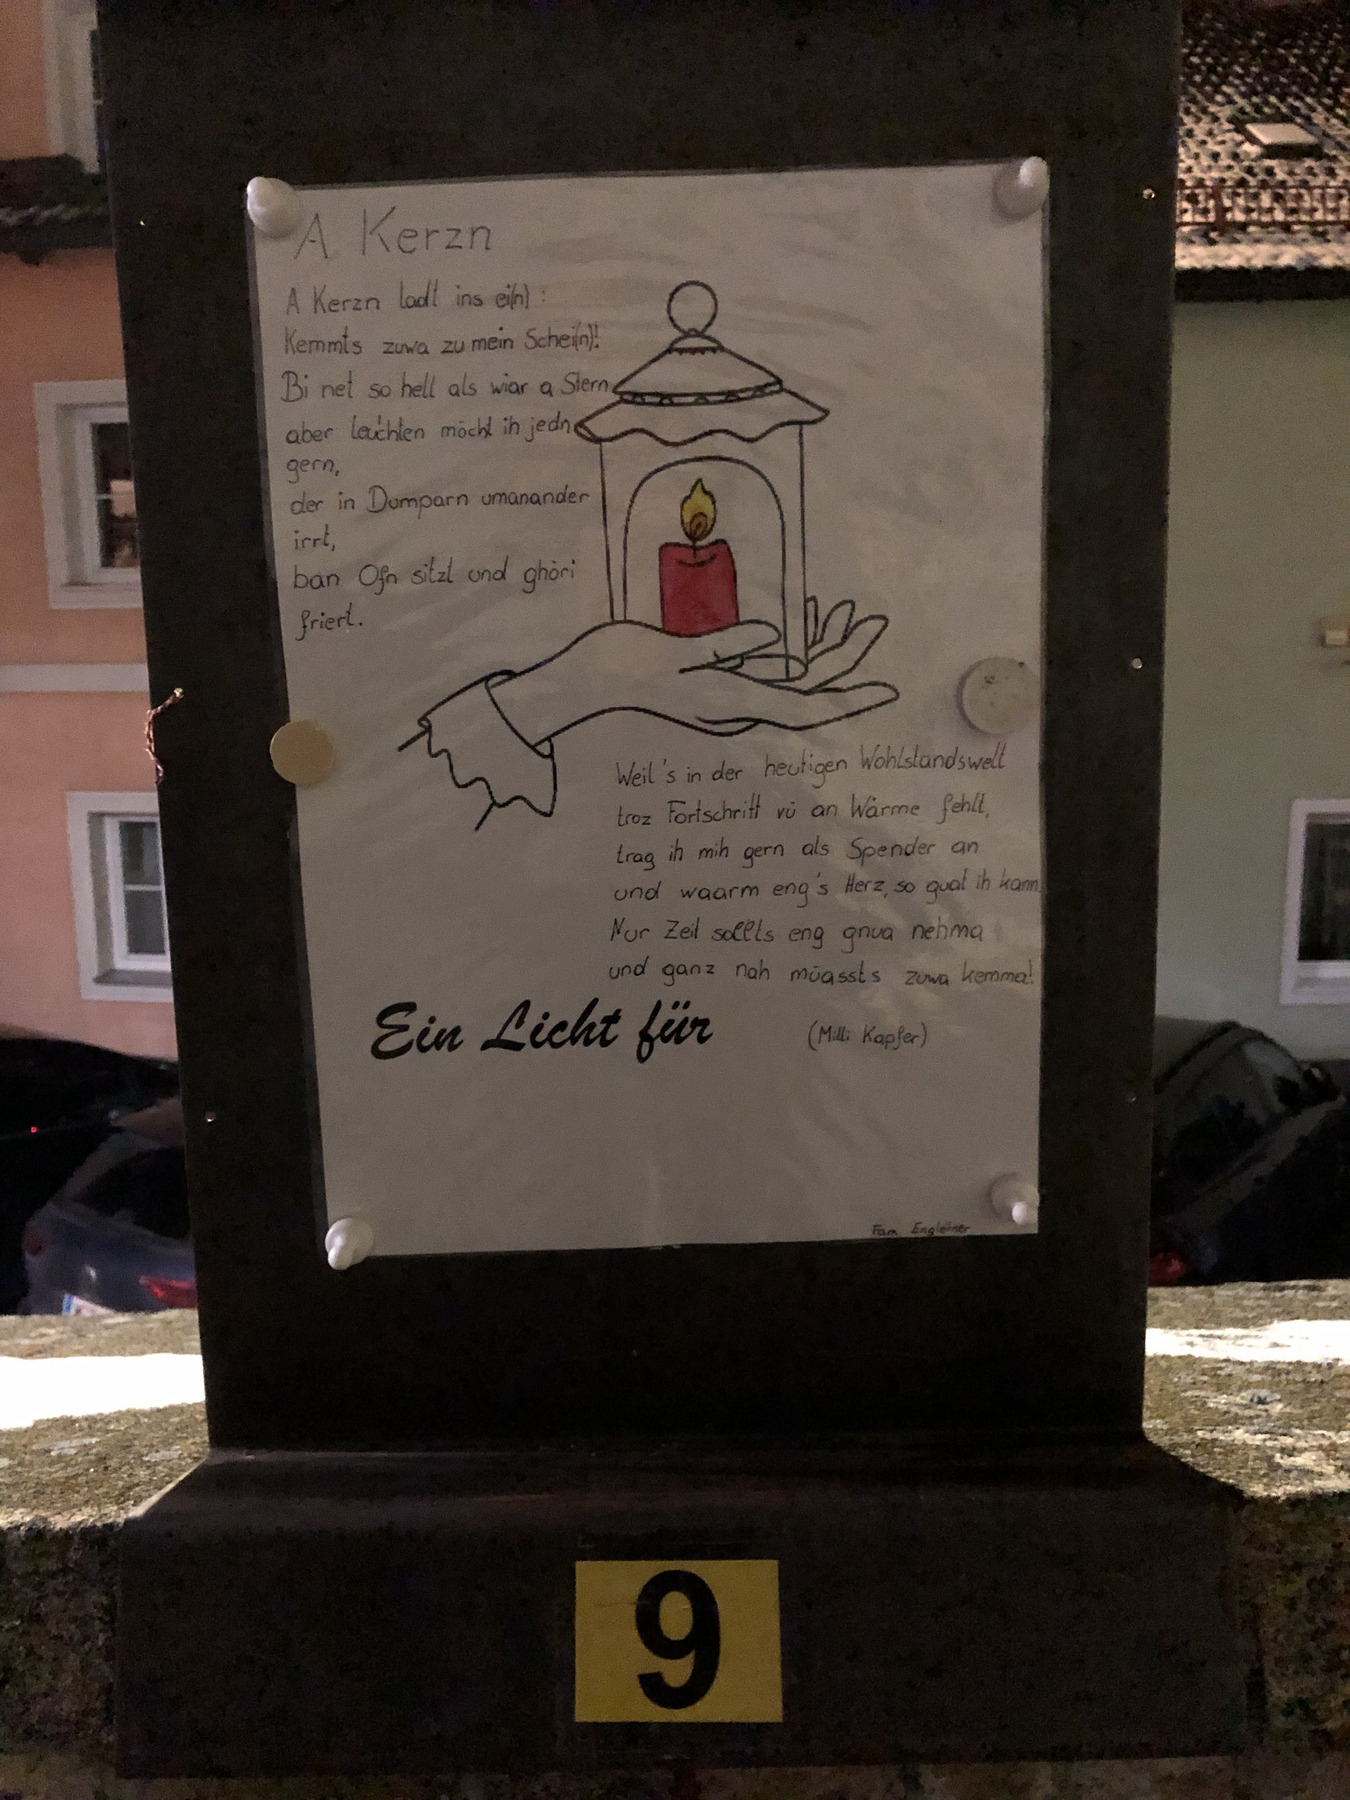 A Kerzn
A Kerzn ladt ins ei(n) :
Kemmts zuwa zu mein Schei(n)!
Bi net so hell als wiar a Stern,
aber leuchten möcht ih jedn
gern,
der in Dumparn umanander
irrt,
ban Ofn sitzt und ghöri
friert.
Weil's in der heutigen Wohlstandswelt
troz Fortschritt vü an Wärme fehlt,
trag ih mih gern als Spender an
und waarm eng's Herz, so guat ih kann.
Nur Zeit sollts eng gnua nehma
und ganz nah müassts zuwa kemma!
Ein Licht für
(Milli Kapfer)
Fam Engleitner
9